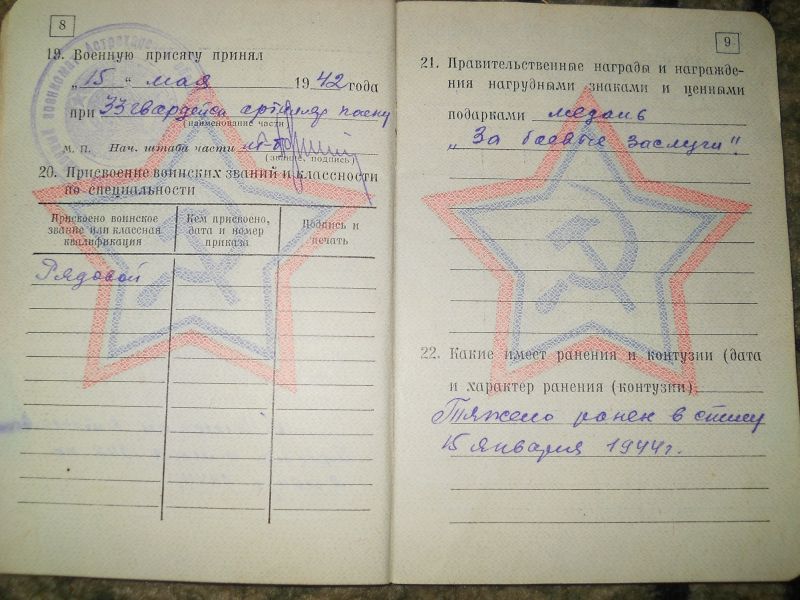 8
19. Военную присягу принял
„15“ мая 1942 года
при 33 гвардейск артилляр полку
(наименование части)
м. п. Нач. штаба части
(звание, подпись)
20. Присвоение воинских званий и классности
по специальности
Присвоено воинское
звание или классная
квалификация
Кем присвоено,
дата и номер
приказа
Подпись и
печать
Рядовой
9
21. Правительственные награды и награжде-
ния нагрудными знаками и ценными
подарками медаль
„За боевые заслуги“.
22. Какие имеет ранения и контузии (дата
и характер ранения (контузии)
Тяжело ранен в спину
15 января 1944 г.